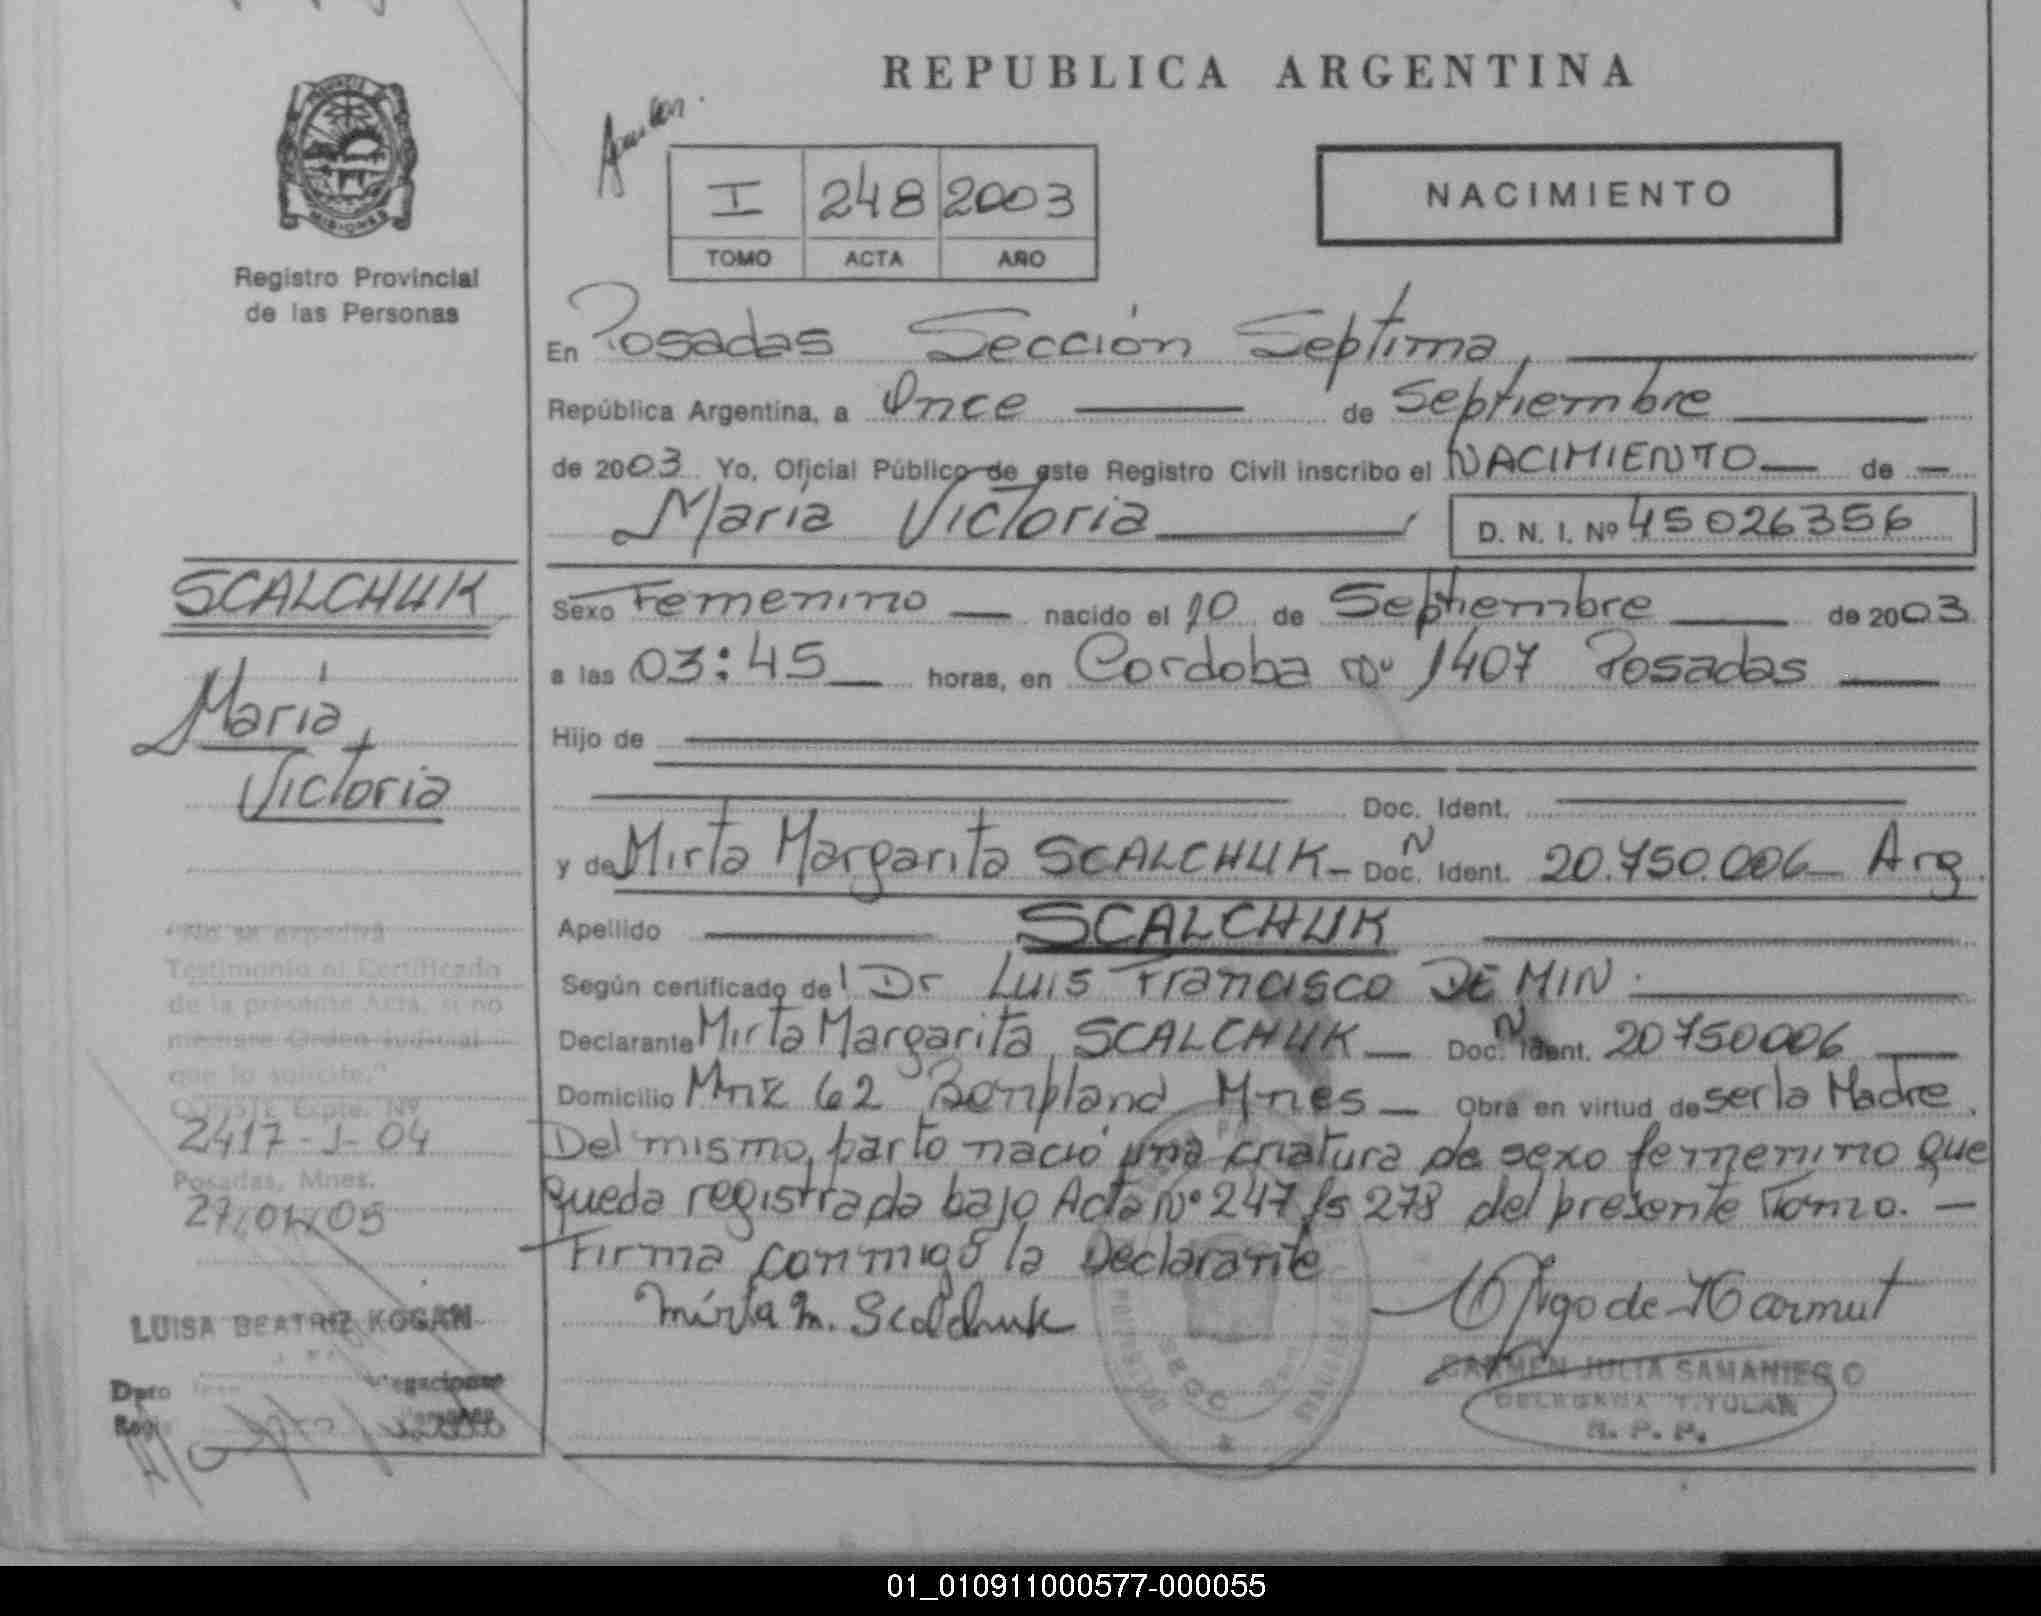 REPUBLICA ARGENTINA
MISIONES
Registro Provincial
de las Personas
I 248 2003
TOMO ACTA AÑO
NACIMIENTO
En Posadas Sección Septima,
República Argentina, a Once de Septiembre
de 2003 Yo, Oficial Público de este Registro Civil inscribo el NACIMIENTO de
María Victoria D. N. I. Nº 45026356
Sexo Femenino nacido el 10 de Septiembre de 2003
a las 03:45 horas, en Cordoba Nº 1407 Posadas
Hijo de
Doc. Ident.
y de Mirta Margarita SCALCHUK - Doc. N Ident. 20.750.006 Arg.
Apellido SCALCHUK
Según certificado de Dr Luis Francisco DE MIN.
Declarante Mirta Margarita SCALCHUK Doc. N Ident. 20750006
Domicilio Mnz 62 Bonpland Mnes Obra en virtud de ser la Madre.
Del mismo parto nació una criatura de sexo femenino que
queda registrada bajo Acta Nº 247 fs 278 del presente Tomo. -
Firma conmigo la Declarante
Mirta M. Scalchuk
CARMEN JULIA SAMANIEGO
DELEGADA TITULAR
R. P. P.
SCALCHUK
María
Victoria
"No se expedirá
Testimonio ni Certificado
de la presente Acta, si no
mediare Orden Judicial
que lo solicite."
CONSTE Expte. Nº
2417-J-04
Posadas, Mnes.
27/01/05
LUISA BEATRIZ KOGAN
Dpto
01_010911000577-000055